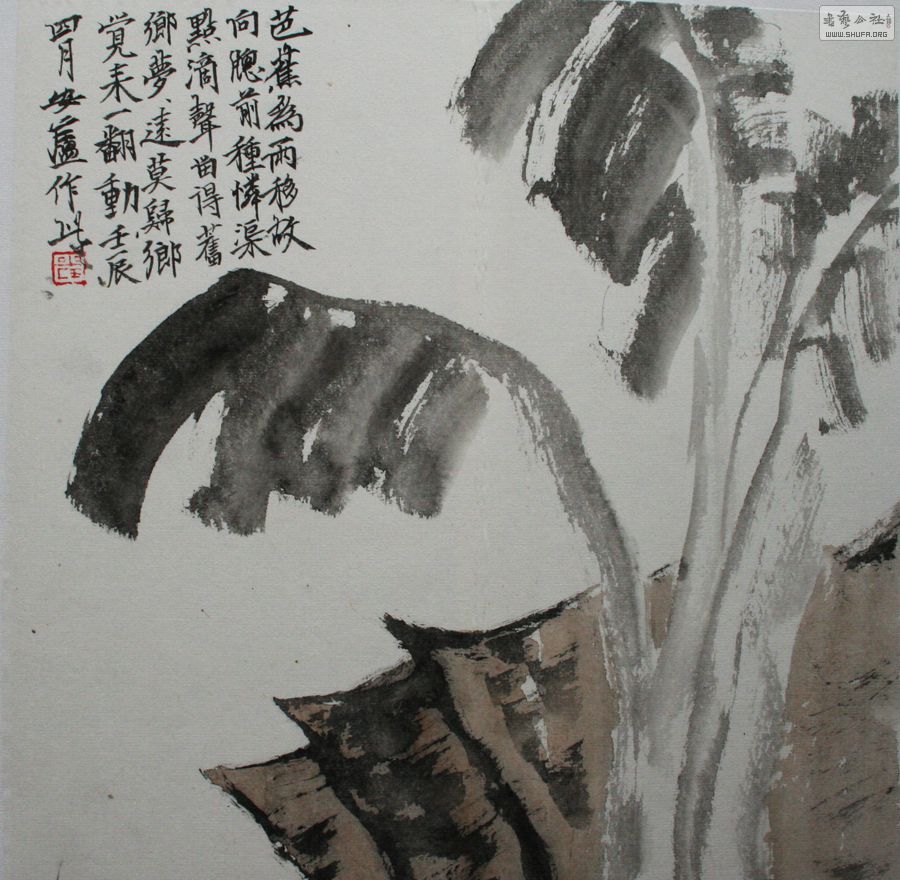 芭蕉為雨移故
向牕前種憐渠
點滴聲畄得舊
鄉夢、遠莫歸鄉
覚来一翻動壬辰
四月安廬作
書藝公社
WWW.SHUFA.ORG